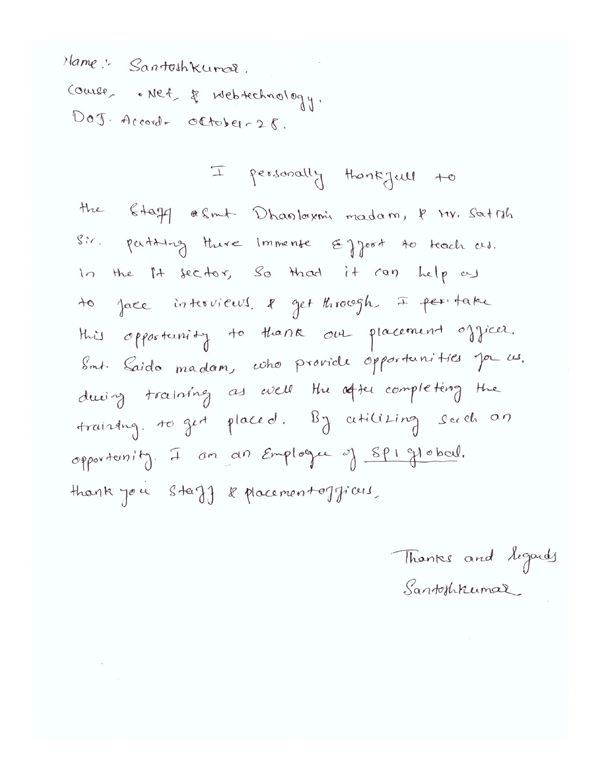 Name :- Santoshkumar.
Course, .Net, & Webtechnology.
DOJ. Accord- October-28.
I personally thankfull to
the Staff Smt. Dhanlaxmi madam, & Mr. Satish
Sir. putting there Immense Effort to teach us.
in the It sector, So that it can help us
to face interviews. & get through. I take
this opportunity to thank our placement officer.
Smt. Saida madam, who provide opportunities for us.
during training as well the after completing the
training. to get placed. By utilizing such an
opportunity. I am an Employee of SPI global.
thank you Staff & placement officers,
Thanks and regards
Santoshkumar